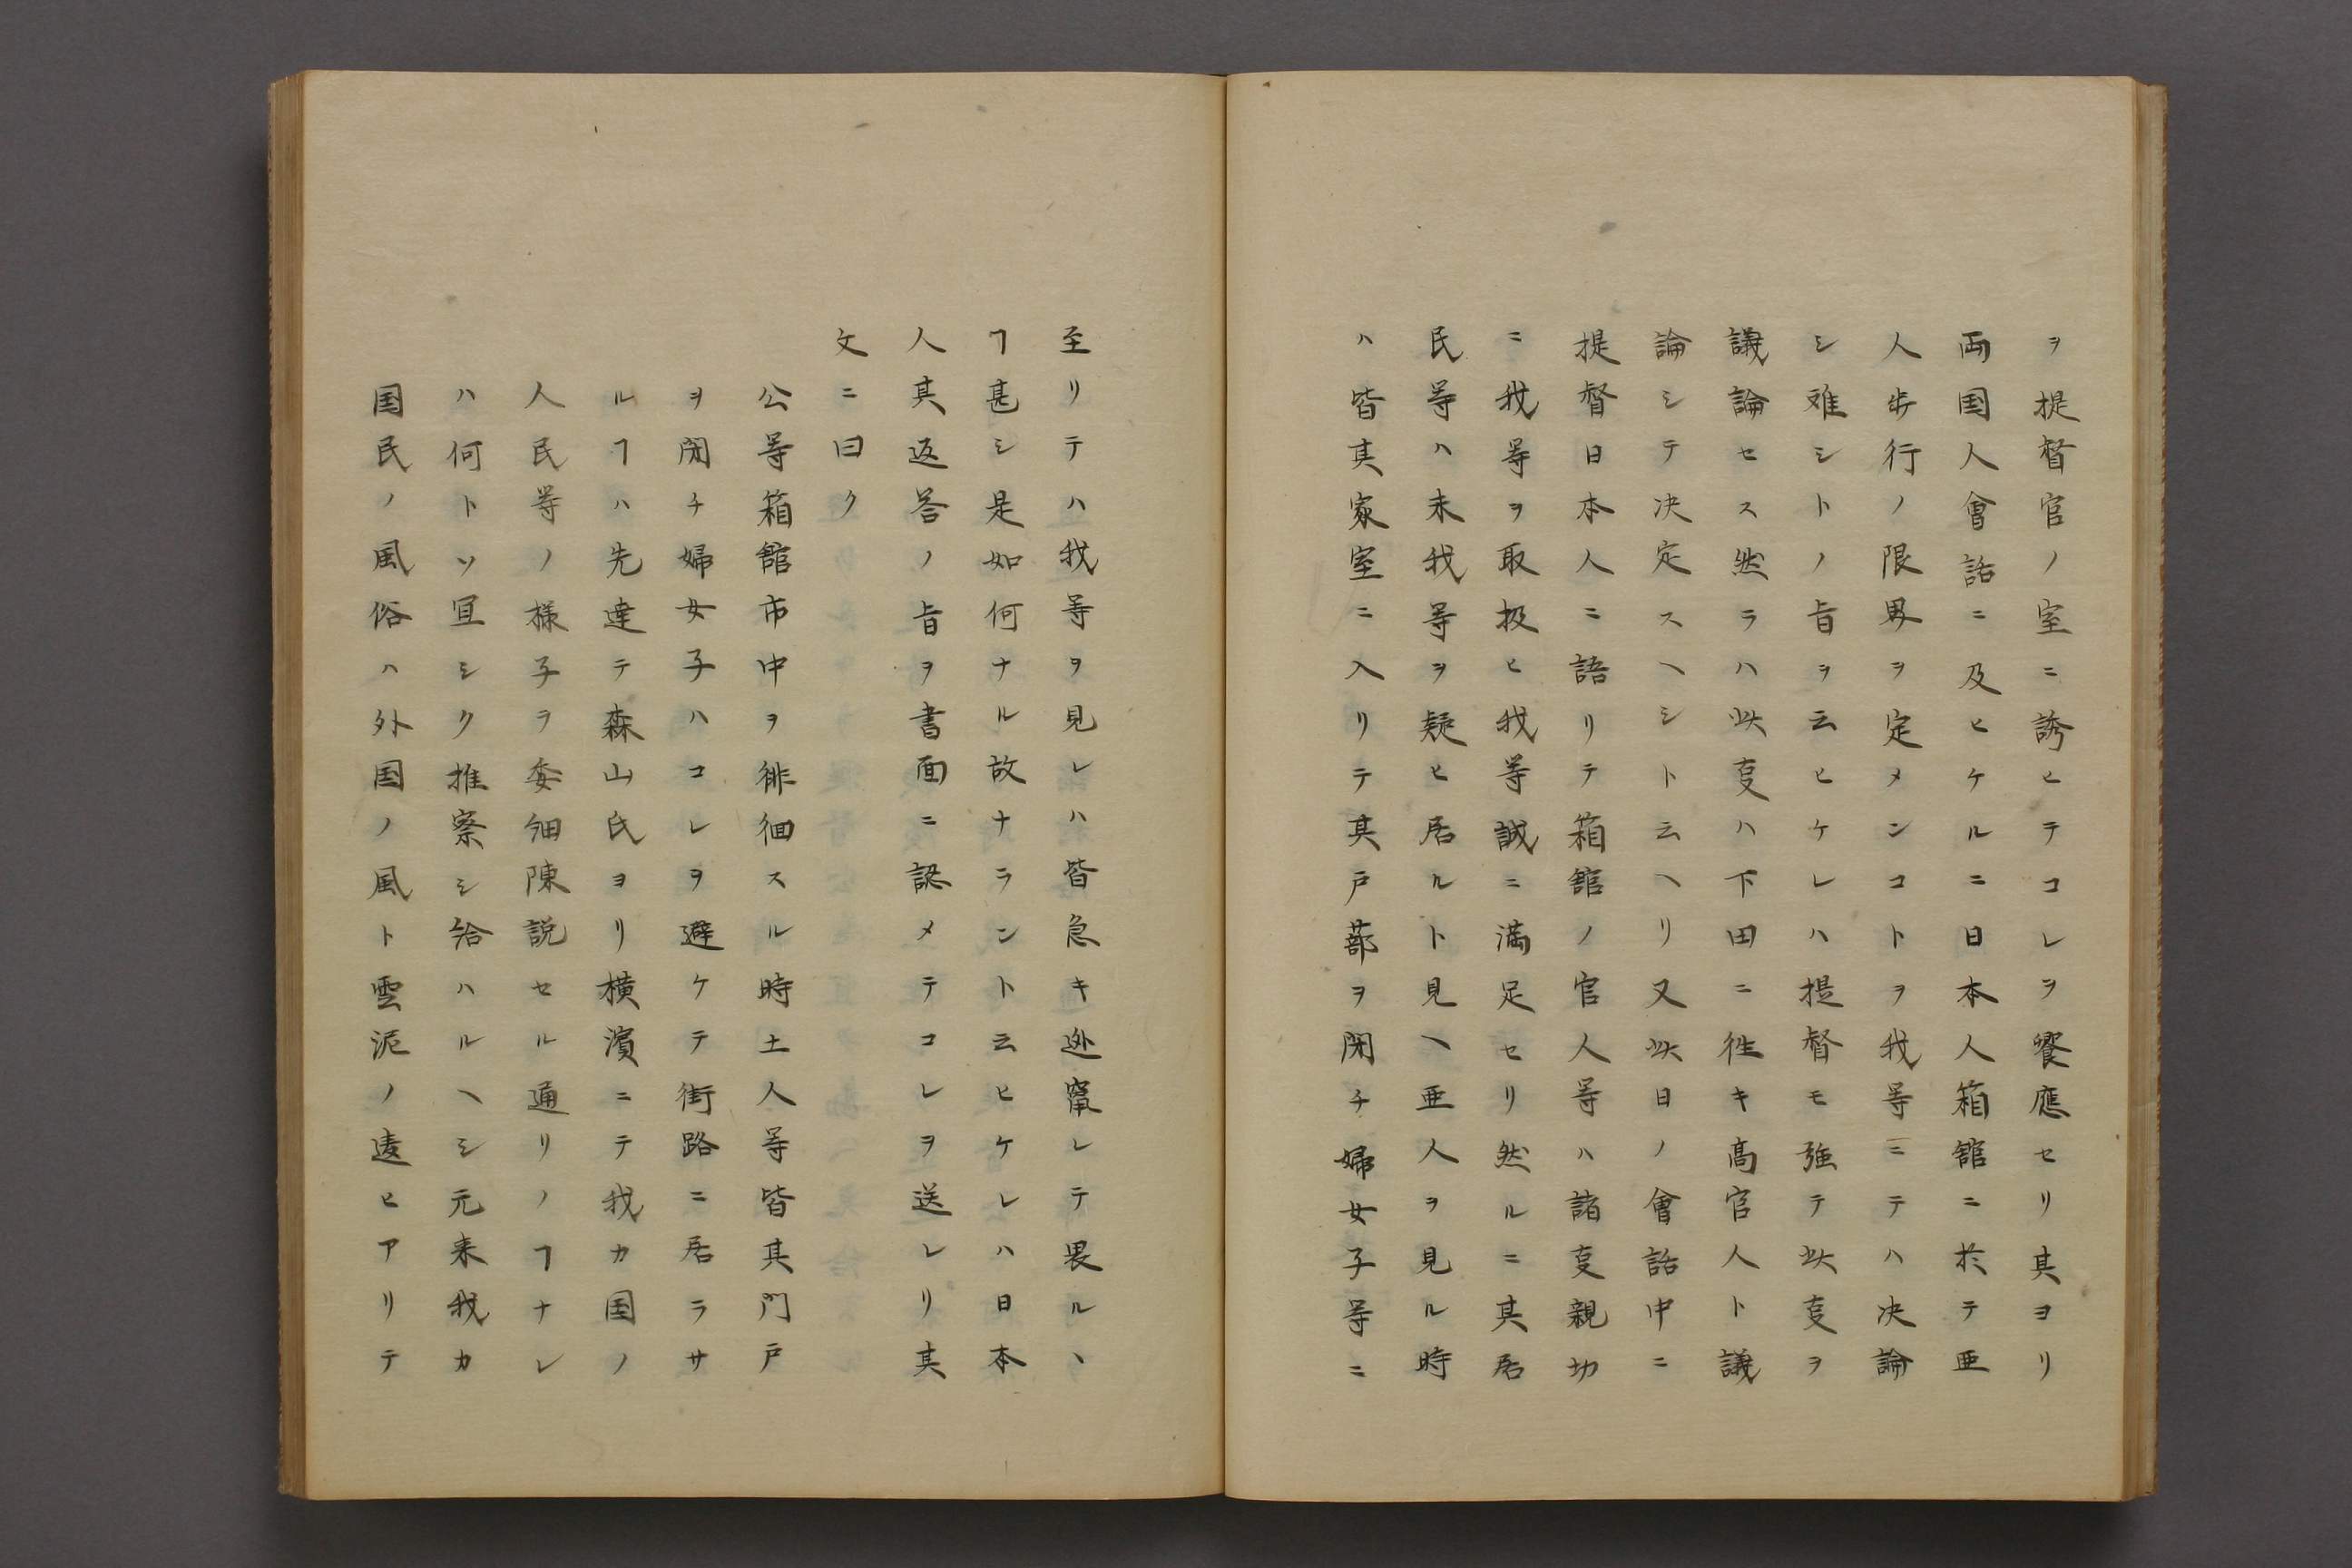 ヲ提督官ノ室ニ誘ヒテコレヲ饗應セリ其ヨリ
両国人會話ニ及ヒケルニ日本人箱館ニ於テ亜
人歩行ノ限界ヲ定メンコトヲ我等ニテハ决論
シ难シトノ旨ヲ云ヒケレハ提督モ強テ此㕝ヲ
議論セス然ラハ此㕝ハ下田ニ徃キ髙官人ト議
論シテ决定スヘシト云ヘリ又此日ノ會話中ニ
提督日本人ニ語リテ箱館ノ官人等ハ諸㕝親切
ニ我等ヲ取扱ヒ我等誠ニ満足セリ然ルニ其居
民等ハ未我等ヲ疑ヒ居ルト見ヘ亜人ヲ見ル時
ハ皆其家室ニ入リテ其戸蔀ヲ閉チ婦女子等ニ
至リテハ我等ヲ見レハ皆急キ迯竄レテ畏ルヽ
ヿ甚シ是如何ナル故ナラント云ヒケレハ日本
人其返答ノ旨ヲ書面ニ認メテコレヲ送レリ其
文ニ曰ク
公等箱館市中ヲ徘徊スル時土人等皆其門戸
ヲ閉チ婦女子ハコレヲ避ケテ街路ニ居ラサ
ルヿハ先達テ森山氏ヨリ横濱ニテ我カ国ノ
人民等ノ様子ヲ委細陳説セル通リノヿナレ
ハ何トソ宜シク推察シ給ハルヘシ元来我カ
国民ノ風俗ハ外国ノ風ト雲泥ノ遠ヒアリテ